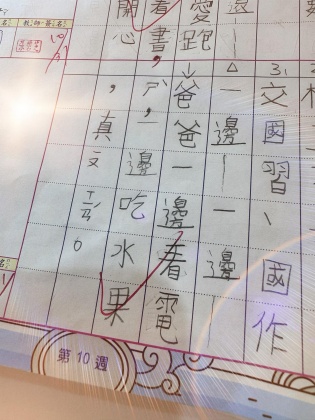 邊｜
愛跑
看書，
開心
3、交國習、國作
△一邊｜一邊
爸爸一邊看電
ㄕˋ，一邊吃水果
，真
。
第10週